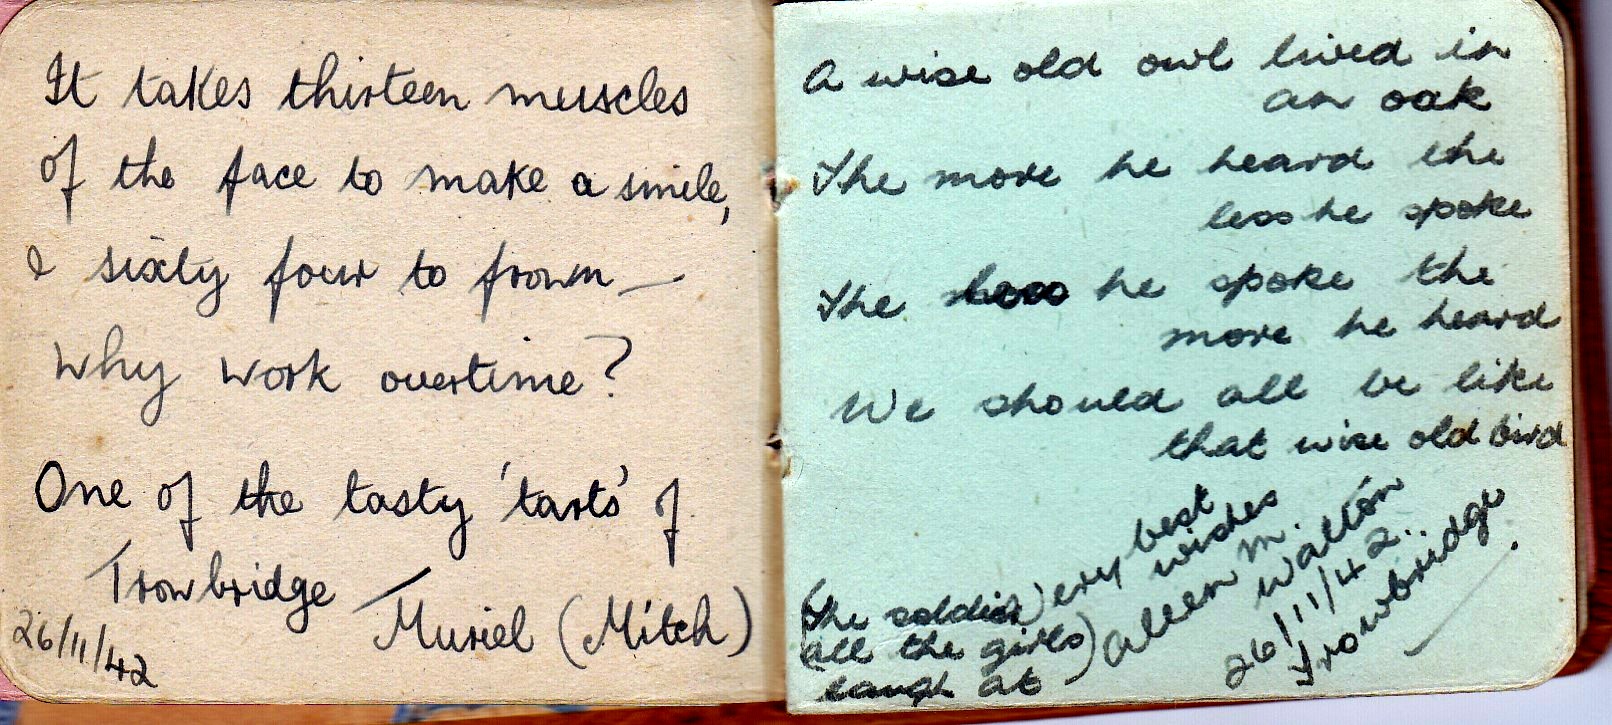 It takes thirteen muscles
of the face to make a smile,
& sixty four to frown —
Why work overtime?
One of the tasty 'tarts' of
Trowbridge
Muriel (Mitch)
26/11/42
A wise old owl lived in
an oak
The more he heard the
less he spoke
The less he spoke the
more he heard
We should all be like
that wise old bird
Very best
wishes
Aleen M. Walton
26/11/42..
Trowbridge.
(The soldier
all the girls)
laugh at